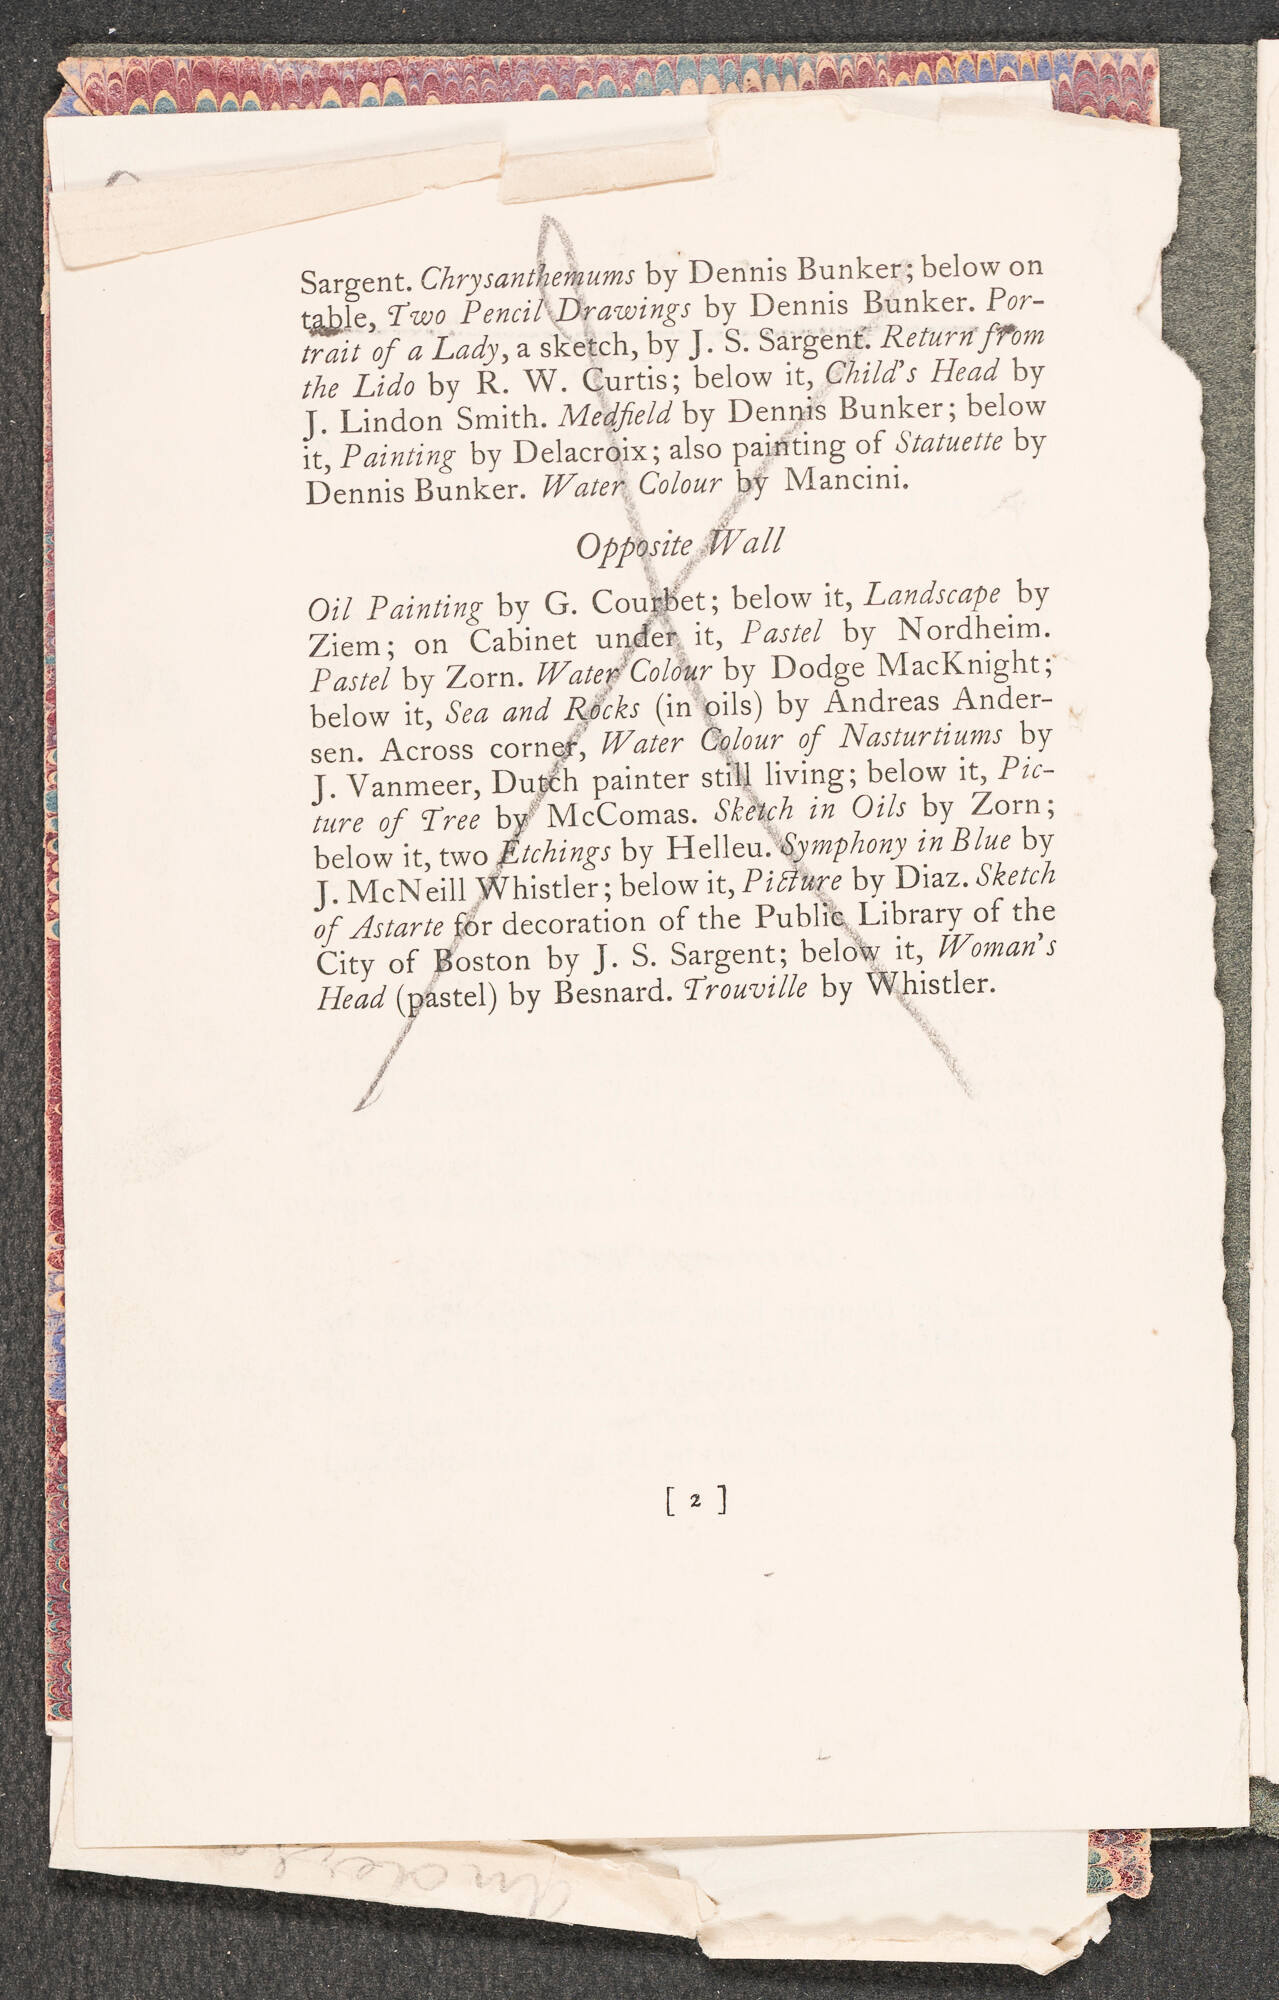 Sargent. Chrysanthemums by Dennis Bunker; below on
table, Two Pencil Drawings by Dennis Bunker. Por-
trait of a Lady, a sketch, by J. S. Sargent. Return from
the Lido by R. W. Curtis; below it, Child's Head by
J. Lindon Smith. Medfield by Dennis Bunker; below
it, Painting by Delacroix; also painting of Statuette by
Dennis Bunker. Water Colour by Mancini.
Opposite Wall
Oil Painting by G. Courbet; below it, Landscape by
Ziem; on Cabinet under it, Pastel by Nordheim.
Pastel by Zorn. Water Colour by Dodge MacKnight;
below it, Sea and Rocks (in oils) by Andreas Ander-
sen. Across corner, Water Colour of Nasturtiums by
J. Vanmeer, Dutch painter still living; below it, Pic-
ture of Tree by McComas. Sketch in Oils by Zorn;
below it, two Etchings by Helleu. Symphony in Blue by
J. McNeill Whistler; below it, Picture by Diaz. Sketch
of Astarte for decoration of the Public Library of the
City of Boston by J. S. Sargent; below it, Woman's
Head (pastel) by Besnard. Trouville by Whistler.
[ 2 ]